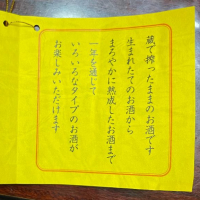 蔵で搾ったままのお酒です
生まれたてのお酒から
まろやかに熟成したお酒まで
一年を通して
いろいろなタイプのお酒が
お楽しみいただけます